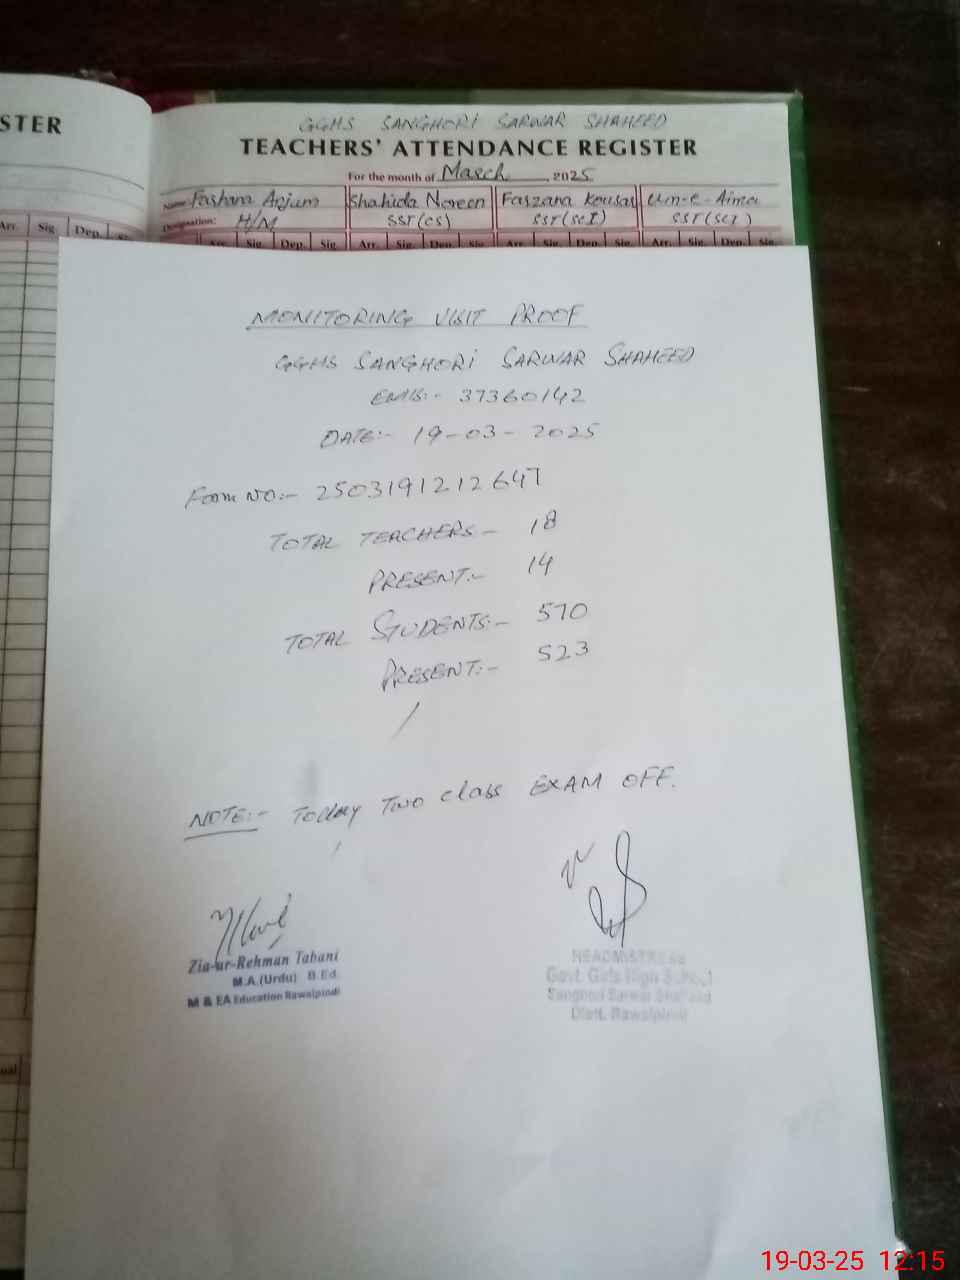 STER
GGHS SANGHORI SARWAR SHAHEED
TEACHERS' ATTENDANCE REGISTER
For the month of March, 2025
Name: Farhana Anjum Shahida Noreen Farzana Kousar Um-e-Aiman
Designation: H/M SST(CS) SST(SCI) SST(SCI)
Arr. Sig. Dep. Sig
Arr. Sig. Dep. Sig Arr. Sig. Dep. Sig Arr. Sig. Dep. Sig Arr. Sig. Dep. Sig.
MONITORING VISIT PROOF
GGHS SANGHORI SARWAR SHAHEED
EMIS:- 37360142
DATE:- 19-03-2025
Form NO:- 2503191212647
TOTAL TEACHERS- 18
PRESENT:- 14
TOTAL STUDENTS:- 570
PRESENT:- 523
NOTE:- Today Two class EXAM OFF.
Zia-ur-Rehman Tabani
M.A.(Urdu) B.Ed.
M & EA Education Rawalpindi
HEADMISTRESS
Govt. Girls High School
Sanghori Sarwar Shaheed
Distt. Rawalpindi
19-03-25 12:15